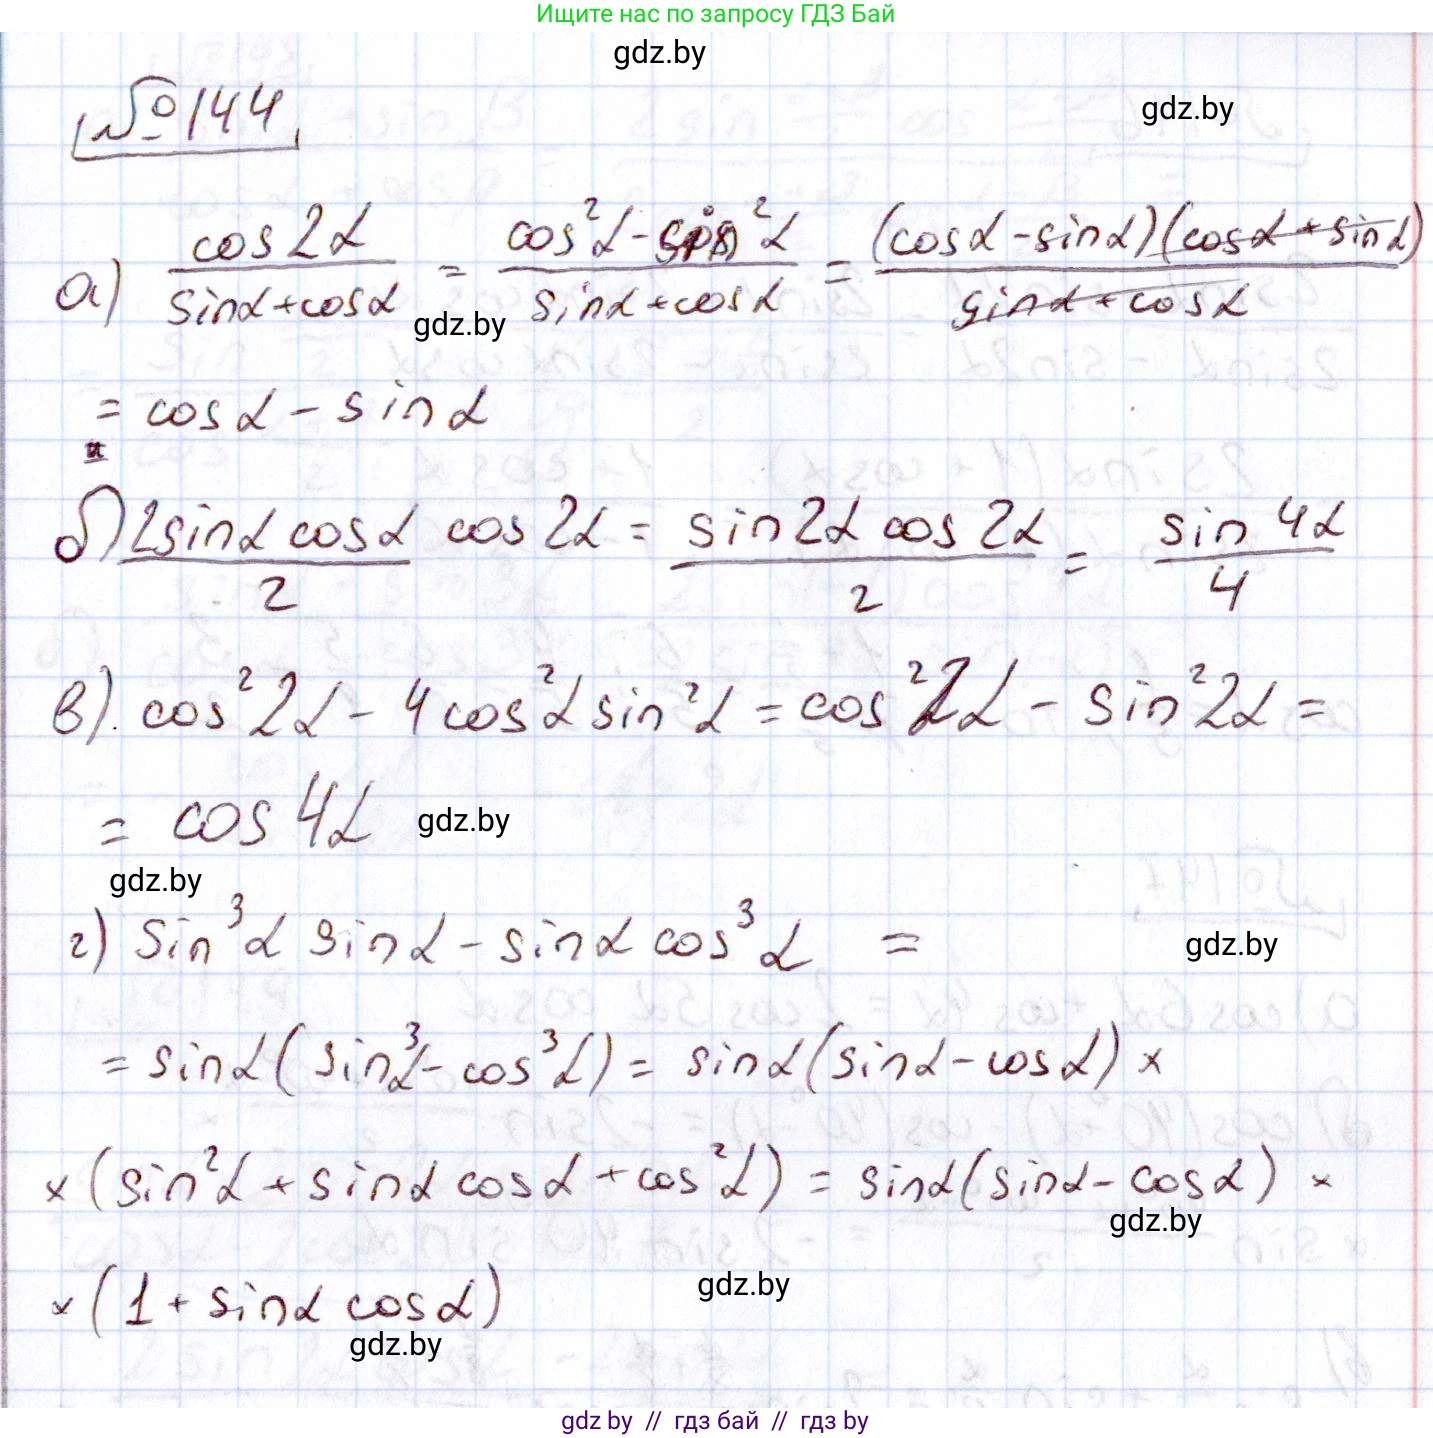 Ищите нас по запросу ГДЗ Бай
gdz.by
№144
gdz.by
а) cos2α / (sinα+cosα) = (cos²α-sin²α) / (sinα+cosα) = (cosα-sinα)(cosα+sinα) / (sinα+cosα)
gdz.by
= cosα - sinα
б) 2sinα cosα / 2 cos2α = sin2α cos2α / 2 = sin4α / 4
в). cos²2α - 4cos²α sin²α = cos²2α - sin²2α =
= cos4α
gdz.by
gdz.by
г) sin³α sinα - sinα cos³α =
gdz.by
= sinα(sin³α - cos³α) = sinα(sinα - cosα) ×
× (sin²α + sinα cosα + cos²α) = sinα(sinα - cosα) ×
gdz.by
× (1 + sinα cosα)
gdz.by
gdz.by
gdz by // гдз бай // гдз by